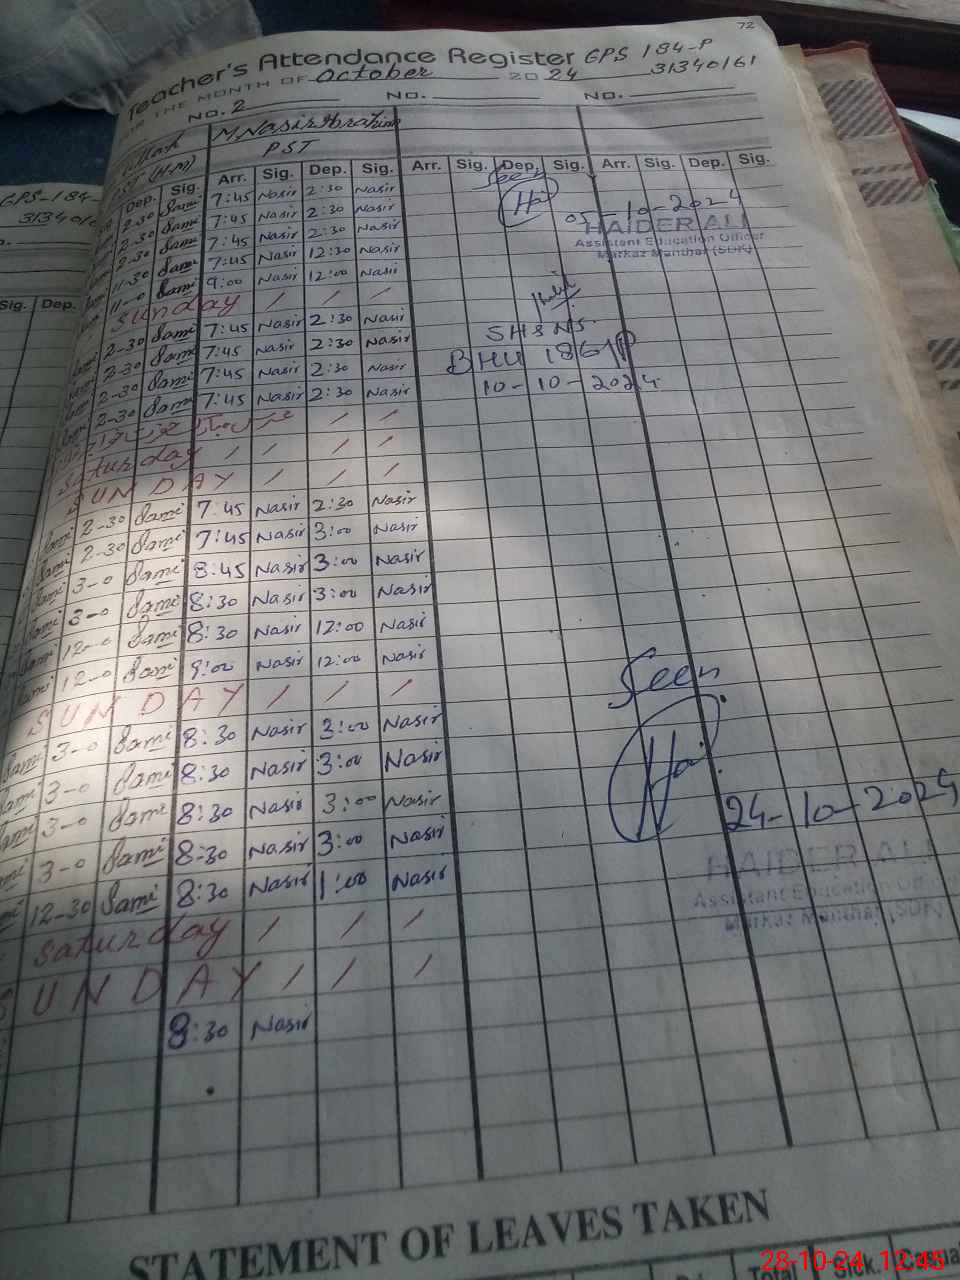 72
Teacher's Attendance Register GPS 184-P
FOR THE MONTH OF October 2024 31340161
NO. 2 NO. NO.
M. Nasir Ibrahim
PST
Dep. Sig. Arr. Sig. Dep. Sig. Arr. Sig. Dep. Sig. Arr. Sig. Dep. Sig.
2-30 Sami 7:45 Nasir 2:30 Nasir
2-30 Sami 7:45 Nasir 2:30 Nasir
2-30 Sami 7:45 Nasir 2:30 Nasir
11-30 Sami 7:45 Nasir 12:30 Nasir
11-0 Sami 9:00 Nasir 12:00 Nasir
Sunday / / /
2-30 Sami 7:45 Nasir 2:30 Nasir
2-30 Sami 7:45 Nasir 2:30 Nasir
2-30 Sami 7:45 Nasir 2:30 Nasir
2-30 Sami 7:45 Nasir 2:30 Nasir
Saturday / / / /
SUNDAY / / /
Sami 2-30 Sami 7:45 Nasir 2:30 Nasir
Sami 2-30 Sami 7:45 Nasir 3:00 Nasir
Sami 3-0 Sami 8:45 Nasir 3:00 Nasir
Sami 3-0 Sami 8:30 Nasir 3:00 Nasir
Sami 12-0 Sami 8:30 Nasir 12:00 Nasir
Sami 12-0 Sami 9:00 Nasir 12:00 Nasir
SUNDAY / / /
Sami 3-0 Sami 8:30 Nasir 3:00 Nasir
Sami 3-0 Sami 8:30 Nasir 3:00 Nasir
Sami 3-0 Sami 8:30 Nasir 3:00 Nasir
Sami 3-0 Sami 8:30 Nasir 3:00 Nasir
Sami 12-30 Sami 8:30 Nasir 1:00 Nasir
Saturday / / /
SUNDAY / / /
8:30 Nasir
Seen
05-10-2024
HAIDER ALI
Assistant Education Officer
Markaz Manthar (SDK)
SH&NS
BHU 186/P
10-10-2024
Seen
24-10-2024
HAIDER ALI
Assistant Education Officer
Markaz Manthar (SDK)
STATEMENT OF LEAVES TAKEN
Total Sick. Casual
GPS-184-
Sig. Dep.
28-10-24 12:45